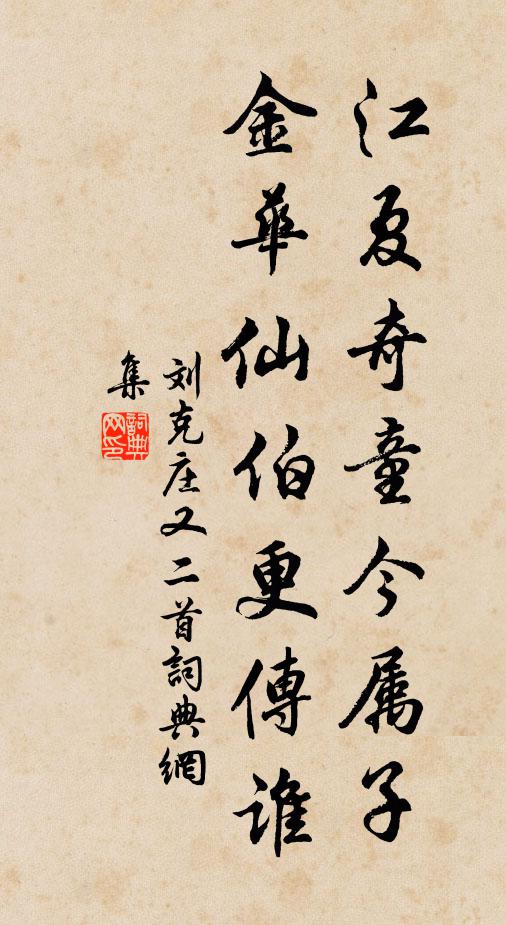 江夏奇童今属子
金華仙伯更傳誰
刘克庄又二首詞典網
集
詞典網印